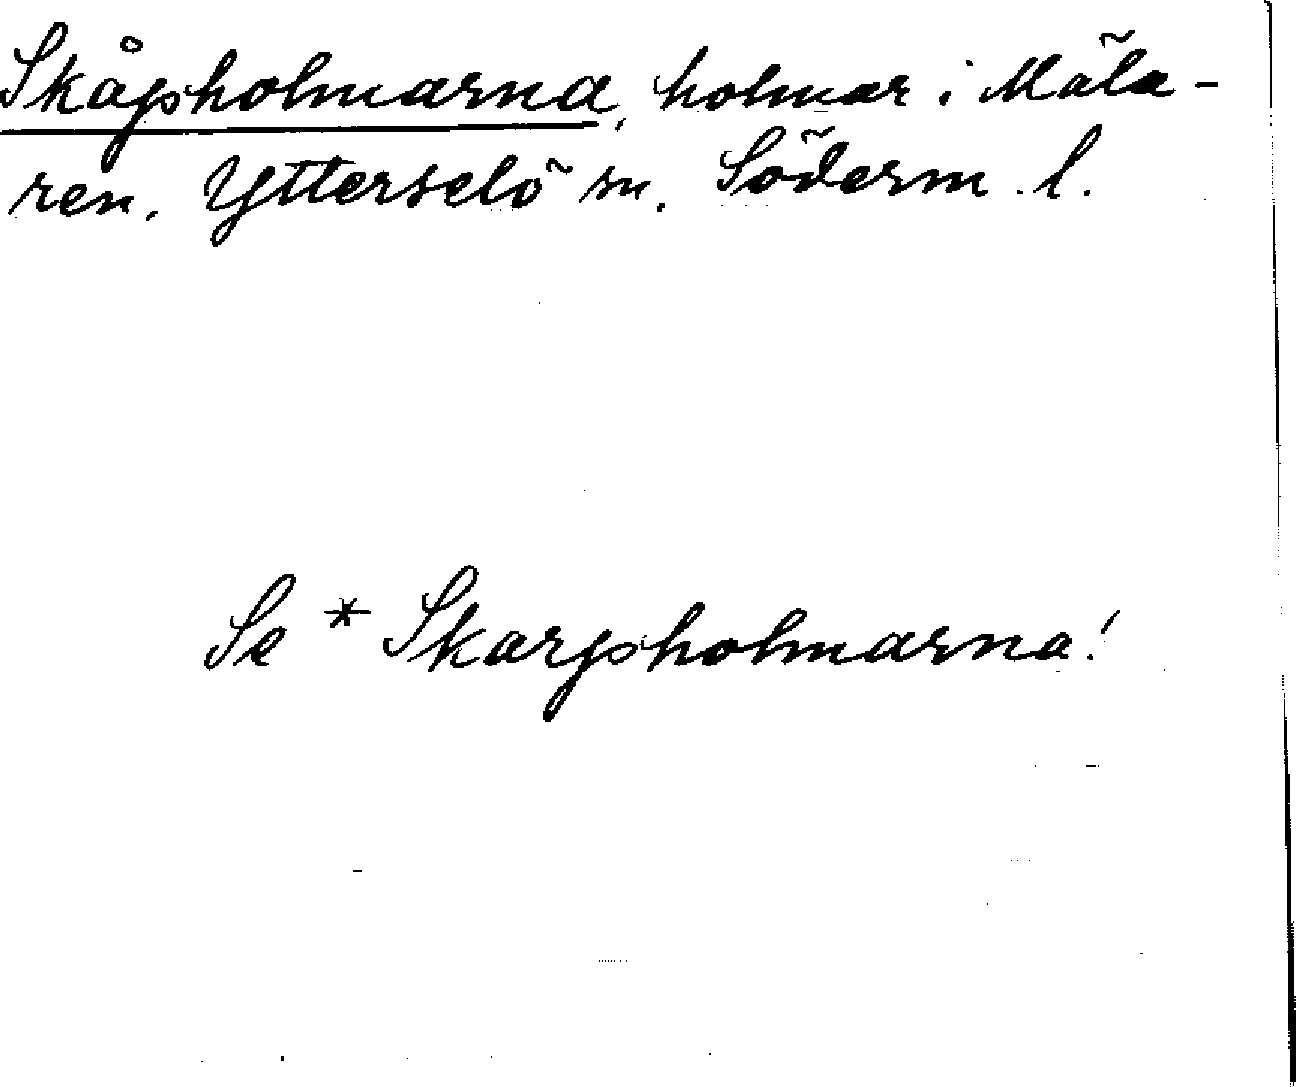 Skåpsholmarna, holmar i Mäla-
ren. Ytterselö sn. Söderm. l.
Se * Skarpsholmarna!